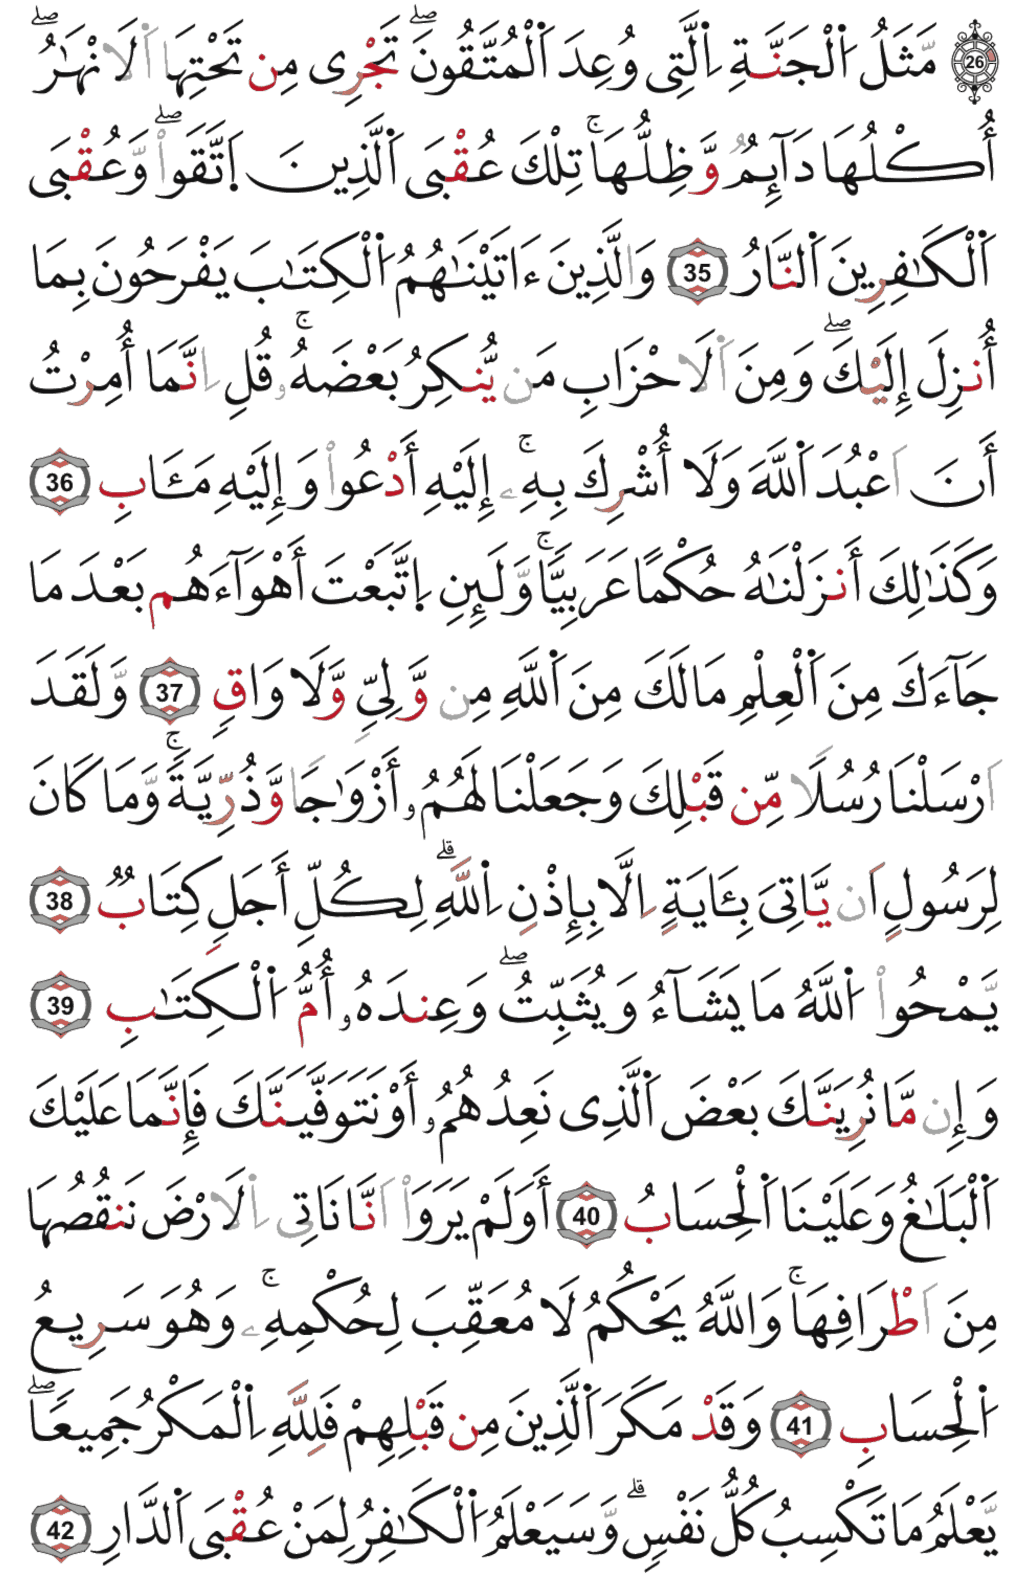 26 مَّثَلُ اَ۬لْجَنَّةِ اِ۬لَّتِى وُعِدَ اَ۬لْمُتَّقُونَۖ تَجْرِى مِن تَحْتِهَا اَ۬لَانْهَٰرُۖ
أُكْلُهَا دَآئِمٌ وَظِلُّهَاۚ تِلْكَ عُقْبَى اَ۬لَّذِينَ اَ۪تَّقَواْۖ وَّعُقْبَى
اَ۬لْكَٰفِرِينَ اَ۬لنَّارُ 35 وَالَّذِينَ ءَاتَيْنَٰهُمُ اُ۬لْكِتَٰبَ يَفْرَحُونَ بِمَا
أُنزِلَ إِلَيْكَۖ وَمِنَ اَ۬لَاحْزَابِ مَن يُّنكِرُ بَعْضَهُۥۚ قُلِ اِنَّمَا أُمِرْتُ
أَنَ اَعْبُدَ اَ۬للَّهَ وَلَا أُشْرِكَ بِهِۦۚ إِلَيْهِ أَدْعُواْ وَإِلَيْهِ مَـَٔابِ 36
وَكَذَٰلِكَ أَنزَلْنَٰهُ حُكْمًا عَرَبِيًّاۚ وَّلَئِنِ اِ۪تَّبَعْتَ أَهْوَآءَهُم بَعْدَ مَا
جَآءَكَ مِنَ اَ۬لْعِلْمِ مَا لَكَ مِنَ اَ۬للَّهِ مِن وَّلِىٍّ وَّلَا وَاقٍ 37 وَّلَقَدَ
اَرْسَلْنَا رُسُلًا مِّن قَبْلِكَ وَجَعَلْنَا لَهُمُۥ أَزْوَٰجًا وَّذُرِّيَّةًۚ وَّمَا كَانَ
لِرَسُولٍ اَن يَّاتِىَ بِـَٔايَةٍ اِلَّا بِإِذْنِ اِ۬للَّهِۗ لِكُلِّ أَجَلٍ كِتَابٌ 38
يَّمْحُواْ اُ۬للَّهُ مَا يَشَآءُ وَيُثَبِّتُۖ وَعِندَهُۥ أُمُّ اُ۬لْكِتَٰبِ 39
وَإِن مَّا نُرِيَنَّكَ بَعْضَ اَ۬لَّذِى نَعِدُهُمُۥ أَوْ نَتَوَفَّيَنَّكَ فَإِنَّمَا عَلَيْكَ
اَ۬لْبَلَٰغُ وَعَلَيْنَا اَ۬لْحِسَابُ 40 أَوَلَمْ يَرَوَاْ اَنَّا نَاتِى اِ۬لَارْضَ نَنقُصُهَا
مِنَ اَطْرَافِهَاۚ وَاللَّهُ يَحْكُمُ لَا مُعَقِّبَ لِحُكْمِهِۦۚ وَهُوَ سَرِيعُ
اُ۬لْحِسَابِ 41 وَقَدْ مَكَرَ اَ۬لَّذِينَ مِن قَبْلِهِمْ فَلِلَّهِ اِ۬لْمَكْرُ جَمِيعًاۖ
يَّعْلَمُ مَا تَكْسِبُ كُلُّ نَفْسٍۗ وَّسَيَعْلَمُ اُ۬لْكَٰفِرُ لِمَنْ عُقْبَى اَ۬لدَّارِ 42